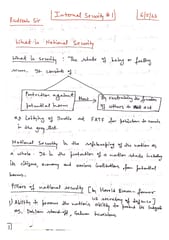 Rudresh Sir
Internal Security #1
6/5/23
What is National Security
What is Security : The state of being or feeling
secure. It consists of :
Protection against
potential harm
from
By restraining the freedom
of others to act
eg Lobbying of India at FATF for Pakistan to remain
in the grey list.
National Security is the safeguarding of the nation as
a whole. It is the protection of a nation state including
its citizens, economy and various institutions from potential
harm.
Pillars of national security [by Harold Brown - former
US secretary of defence]
1) Ability to preserve the nation's ability to protect its
eg.
1